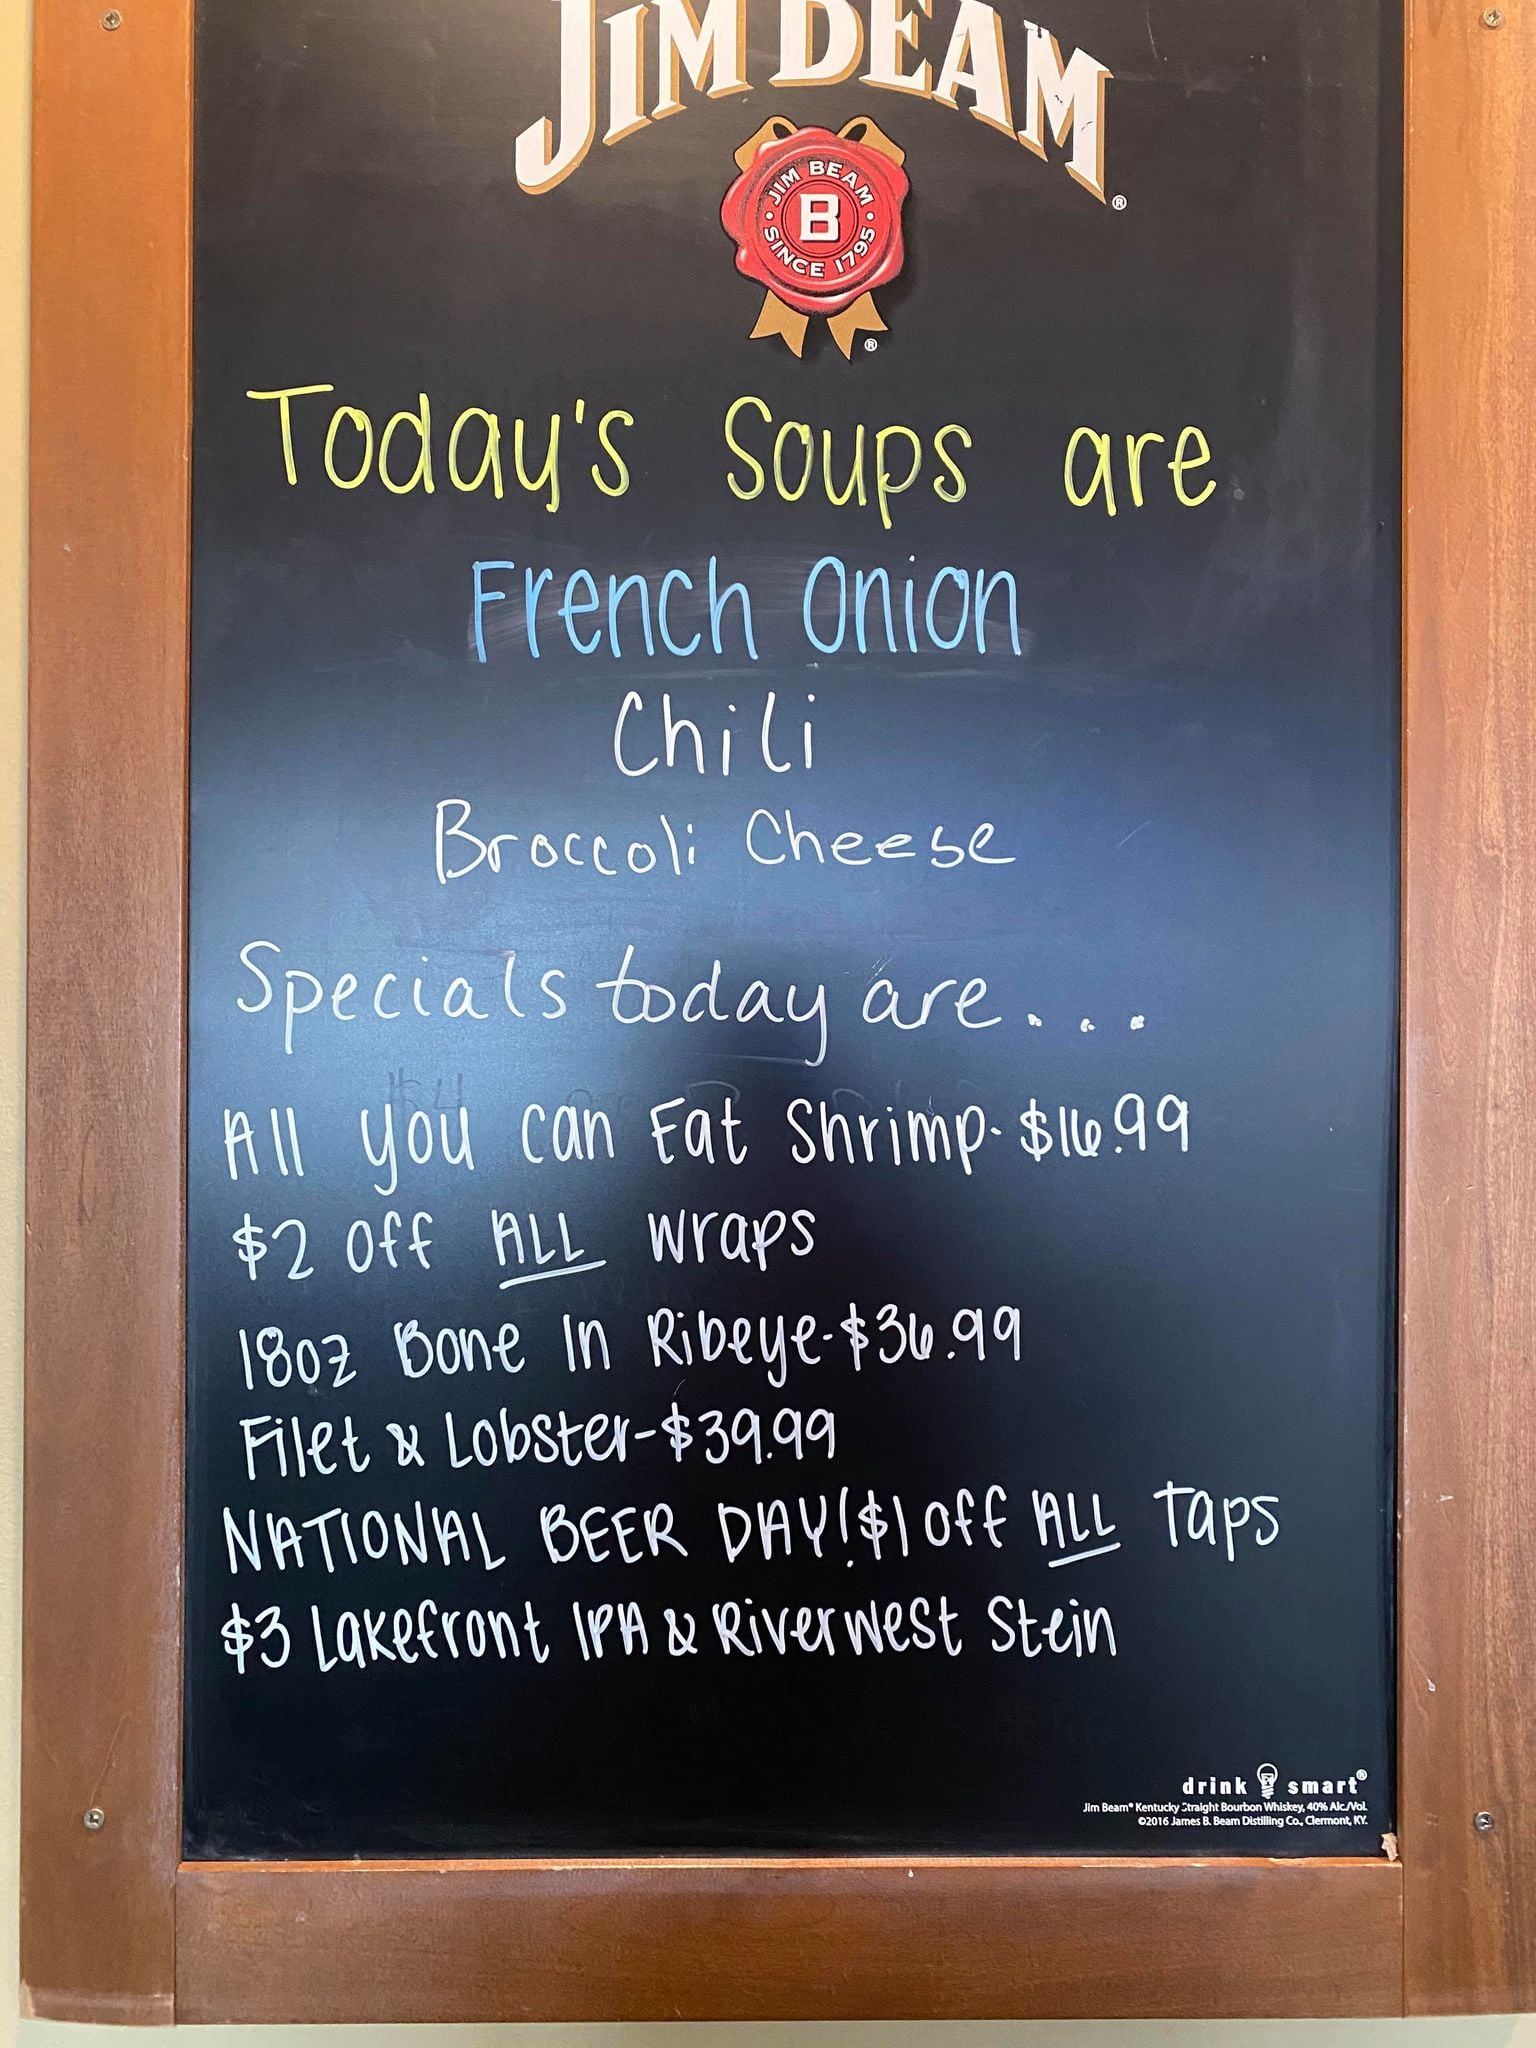 JIM BEAM®
JIM BEAM
B
SINCE 1795
®
Today's Soups are
French Onion
Chili
Broccoli Cheese
Specials today are....
All you can Eat Shrimp- $16.99
$2 off ALL wraps
18oz Bone In Ribeye-$36.99
Filet & Lobster-$39.99
NATIONAL BEER DAY! $1 off ALL Taps
$3 Lakefront IPA & Riverwest Stein
drink smart®
Jim Beam® Kentucky Straight Bourbon Whiskey, 40% Alc./Vol.
©2016 James B. Beam Distilling Co., Clermont, KY.